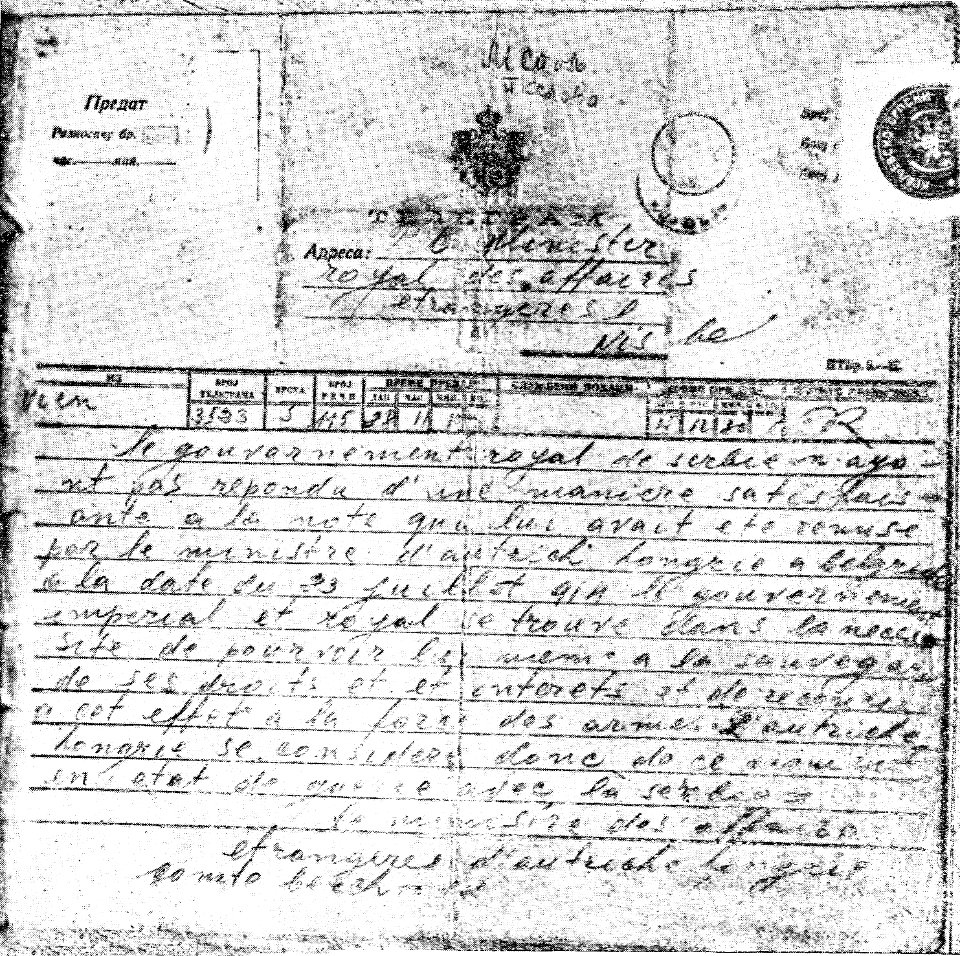 Предат
Разноснер бр.
час. мин.
ТЕЛЕГРАМ
Адреса:
Minister
royal des affaires
etrangeres
ИЗ
БРОЈ ТЕЛЕГРАМА
ВРСТА
БРОЈ РЕЧИ
ВРЕМЕ ПРЕДАЈЕ
ДАН ЧАС МИН.
wien
3523 5 115 28 11
le gouvernement royal de serbie n ayo
nt pas repondu d'une maniere satisfais
ante a la note qui lui avait ete remise
par le ministre d'autrich hongrie a belgrade
a la date du 23 juillet qin le gouvernement
imperial et royal se trouve dans la neces
site de pourvoir lui meme a la sauvegar
de ses droits et et interets et de recourir
a cet effet a la force des armes L'autriche
hongrie se considere donc de ce moment
en etat de guerre avec la serbie =
le ministre des affaires
etrangeres d'autriche hongrie
comte